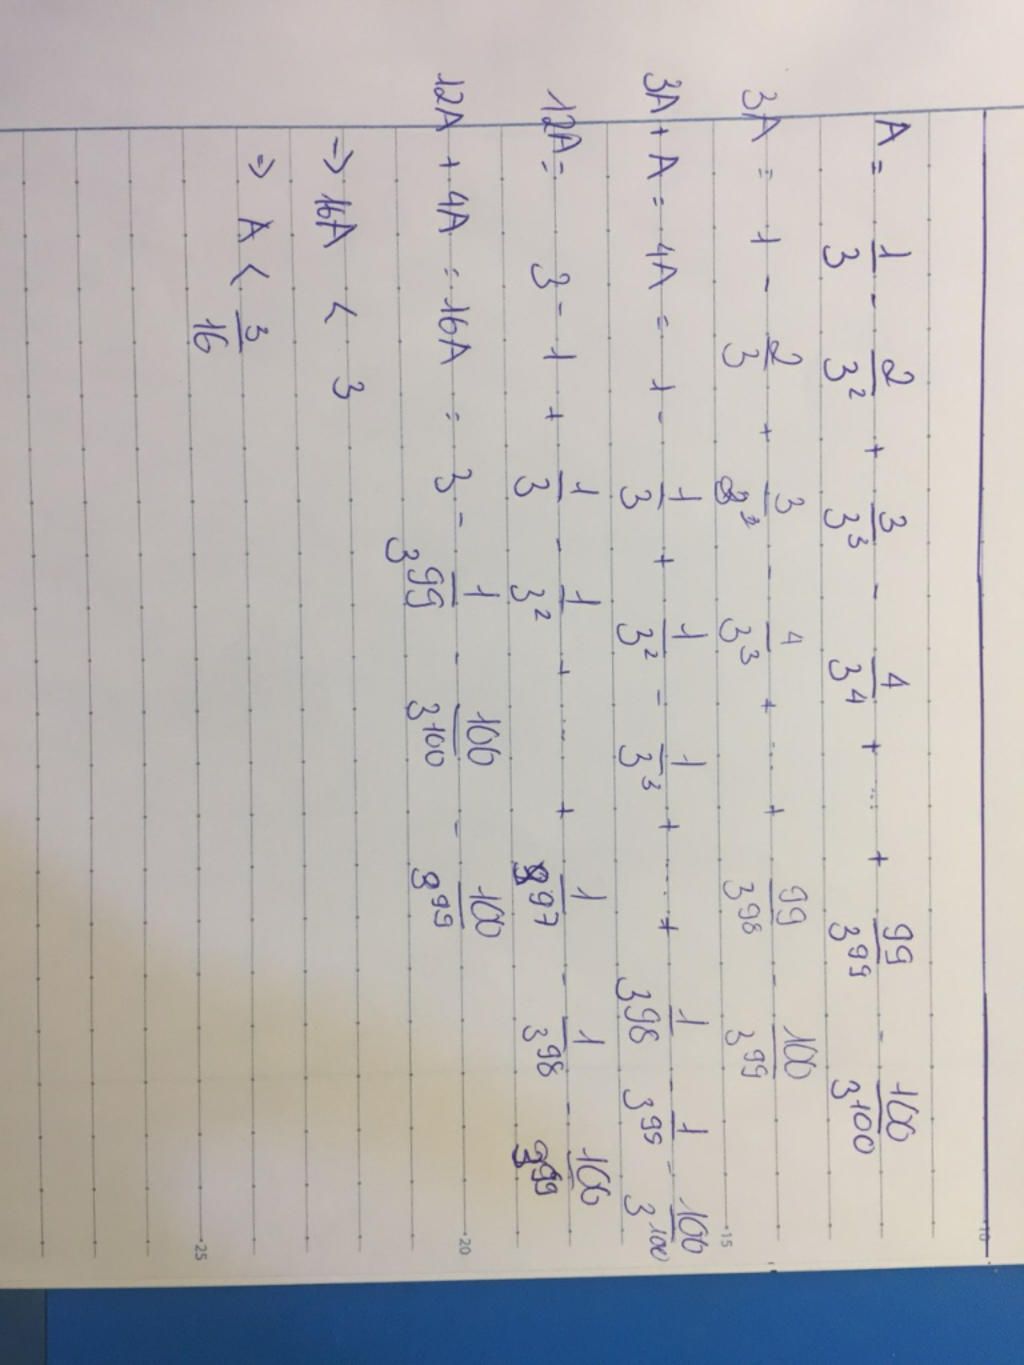 A = 1/3 - 2/3² + 3/3³ - 4/3⁴ + ... + 99/3⁹⁹ - 100/3¹⁰⁰
3A = 1 - 2/3 + 3/3² - 4/3³ + ... + 99/3⁹⁸ - 100/3⁹⁹
3A + A = 4A = 1 - 1/3 + 1/3² - 1/3³ + ... + 1/3⁹⁸ - 1/3⁹⁹ - 100/3¹⁰⁰
12A = 3 - 1 + 1/3 - 1/3² + ... + 1/3⁹⁷ - 1/3⁹⁸ - 100/3⁹⁹
12A + 4A = 16A = 3 - 1/3⁹⁹ - 100/3¹⁰⁰ - 100/3⁹⁹
→ 16A < 3
⇒ A < 3/16
10
15
20
25